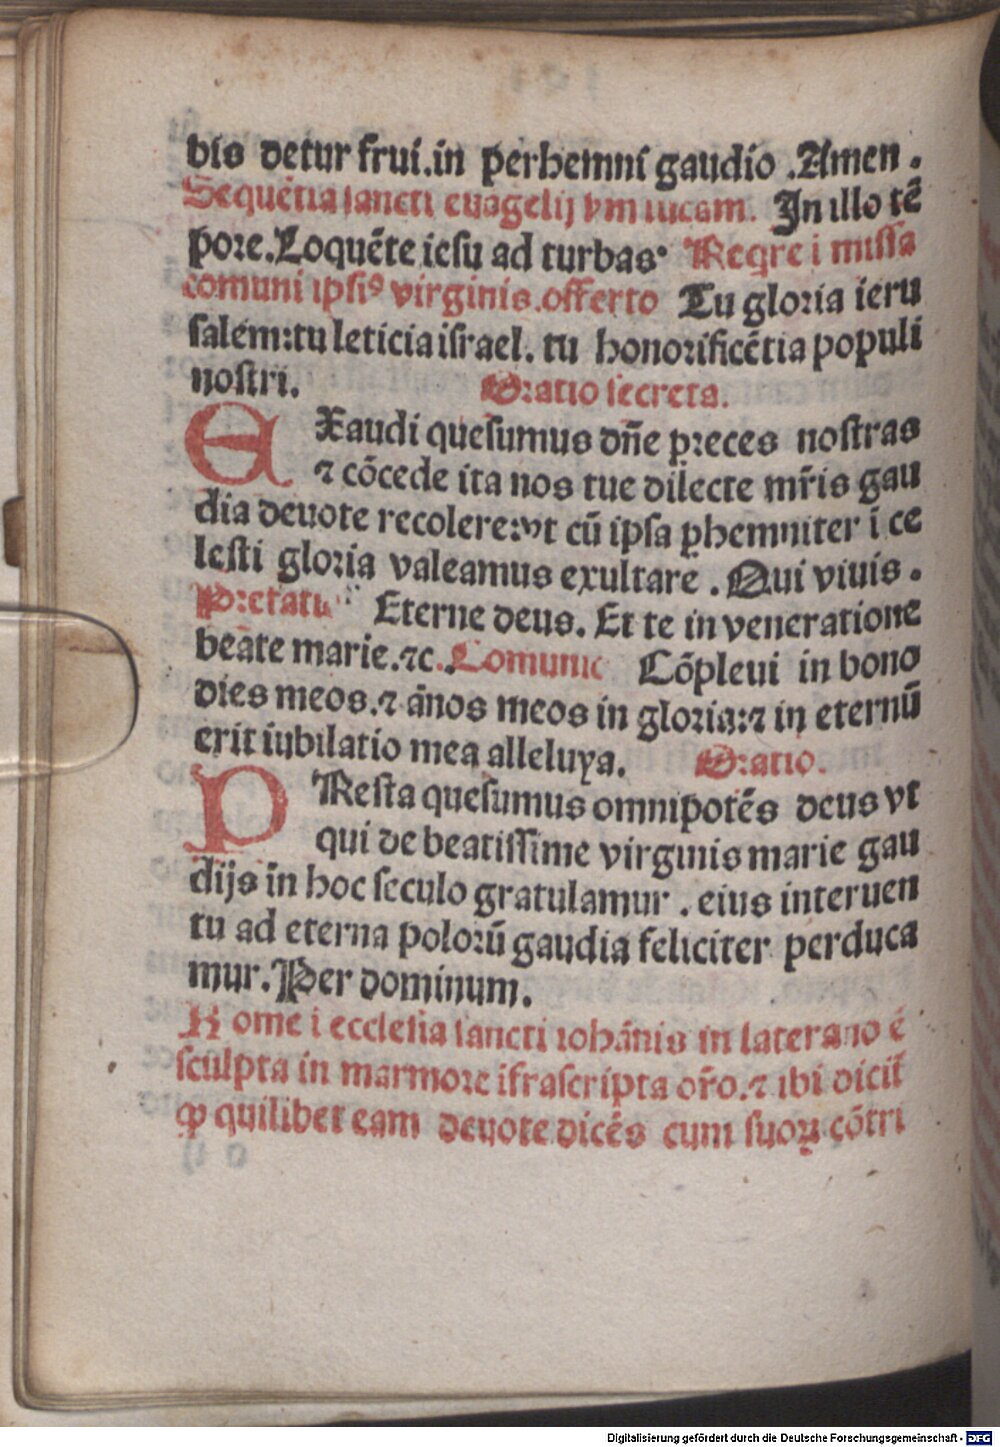 bis detur frui.in perhemni gaudio .Amen.
Sequētia sancti euāgelij ẜm lucam. In illo tē
pore.Loquēte iesu ad turbas· Reqre i missa
comuni ipsiꝰ virginis.offerto Tu gloria ieru
salem:tu leticia israel. tu honorificētia populi
nostri. Oratio secreta.
EXaudi quesumus dñe preces nostras
⁊ cōcede ita nos tue dilecte mr̄is gau
dia deuote recolere:vt cū ipsa ꝑhemniter ī ce
lesti gloria valeamus exultare . Qui viuis.
Prefatio Eterne deus. Et te in veneratione
beate marie.⁊c. Comunic Cōpleui in bono
dies meos.⁊ ānos meos in gloria:⁊ in eternū
erit iubilatio mea alleluya. Oratio.
PResta quesumus omnipotēs deus vt
qui de beatissime virginis marie gau
dijs in hoc seculo gratulamur . eius interuen
tu ad eterna polorū gaudia feliciter perduca
mur.Per dominum.
Rome i ecclesia sancti iohānis in laterano ē
sculpta in marmore ifrascripta or̄o.⁊ ibi dicit̄
ꝙ quilibet eam deuote dicēs cum suoꝝ cōtri
Digitalisierung gefördert durch die Deutsche Forschungsgemeinschaft - DFG